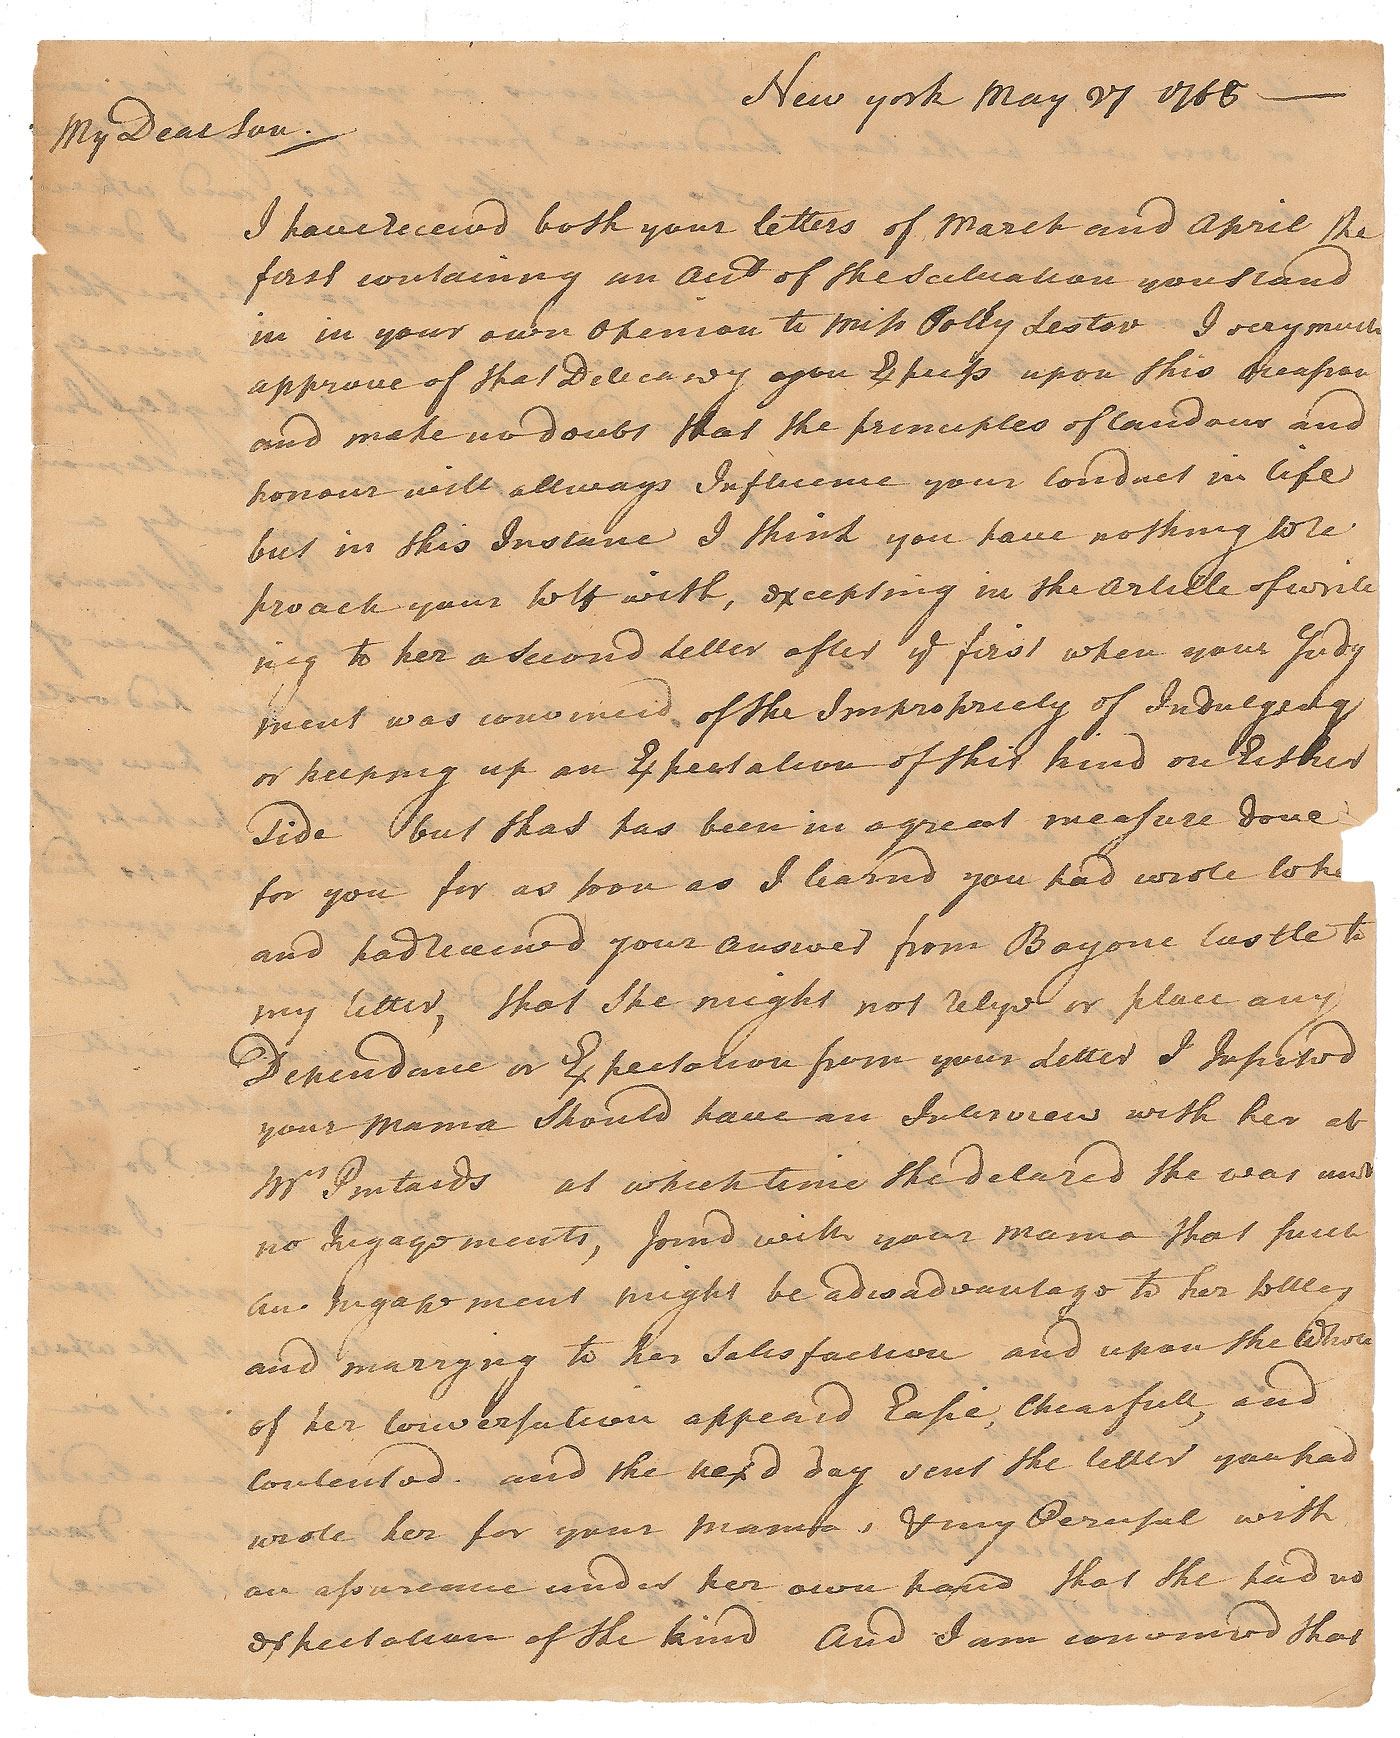 New york May 27 1765
My Dear Son.
I have receivd both your letters of March and April the
first containing an Acct of the Scituation you stand
in in your own Openion to Miss Polly Lestor I very much
approve of that Delecaucy you Express upon this
and make no doubt that the principles of Candour and
honour will allways Influence your Conduct in life
but in this Instance I think you have nothing to re
proach your self with, excepting in the Article of write
ing to her a Second Letter after ye first when your Judg
ment was convinced of the Impropriety of Indulgeing
or keeping up an Expectation of this kind on Either
Side but that has been in a great measure done
for you for as soon as I learnd you had wrote to he
and had receivd your answer from Bayone Castle to
my letter, that She might not relye or place any
Dependance or Expectation from your Letter I Insisted
your Mama Should have an Interview with her at
Mrs Pintards at which time She declared She was und
no Ingagements, Joind with your Mama that Such
an Ingagement might be a disadvantage to her
and marrying to her Satisfaction and upon the Whole
of her Conversation appeard Easie, Chearfull, and
Contented. and the next day sent the letter you had
wrote her for your Mama, & my Perusal with
an assurance under her own hand that She had no
expectation of the kind And I am convinced that